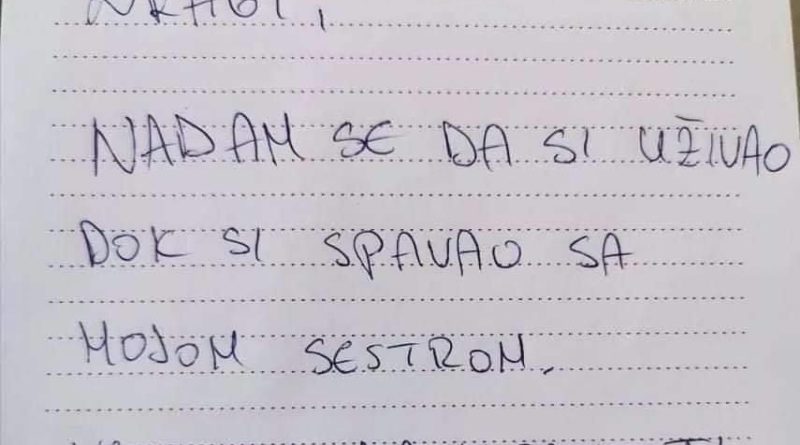 NADAM SE DA SI UŽIVAO
DOK SI SPAVAO SA
MOJOM SESTROM.